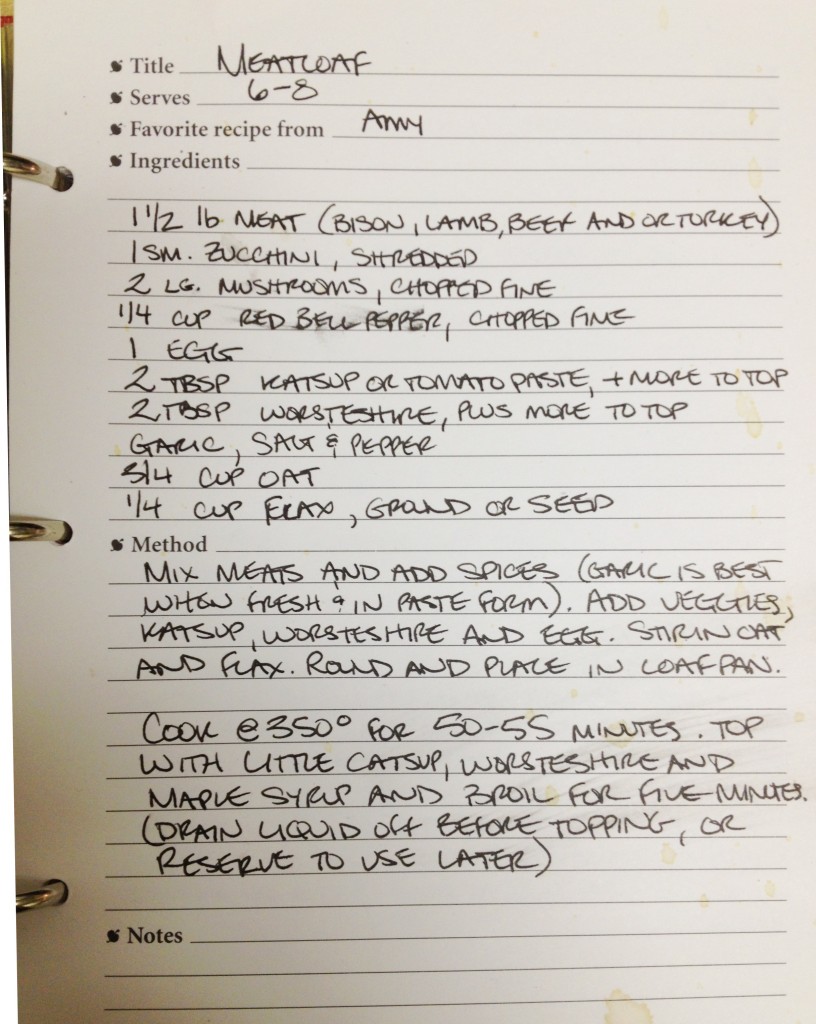 Title MEATLOAF
Serves 6-8
Favorite recipe from AMY
Ingredients
1 1/2 lb MEAT (BISON, LAMB, BEEF AND OR TURKEY)
1 SM. ZUCCHINI, SHREDDED
2 LG. MUSHROOMS, CHOPPED FINE
1/4 CUP RED BELL PEPPER, CHOPPED FINE
1 EGG
2 TBSP KATSUP OR TOMATO PASTE, + MORE TO TOP
2 TBSP WORSTESHIRE, PLUS MORE TO TOP
GARLIC, SALT & PEPPER
3/4 CUP OAT
1/4 CUP FLAX, GROUND OR SEED
Method
MIX MEATS AND ADD SPICES (GARLIC IS BEST
WHEN FRESH & IN PASTE FORM). ADD VEGGIES,
KATSUP, WORSTESHIRE AND EGG. STIR IN OAT
AND FLAX. ROUND AND PLACE IN LOAF PAN.
COOK @ 350° FOR 50-55 MINUTES. TOP
WITH LITTLE CATSUP, WORSTESHIRE AND
MAPLE SYRUP AND BROIL FOR FIVE MINUTES.
(DRAIN LIQUID OFF BEFORE TOPPING, OR
RESERVE TO USE LATER)
Notes